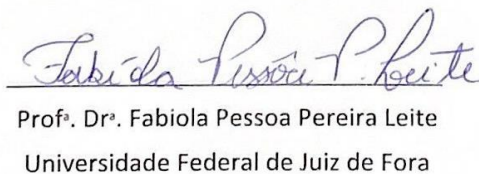 Fabíola Pessôa P. Leite
Profª. Drª. Fabiola Pessoa Pereira Leite
Universidade Federal de Juiz de Fora